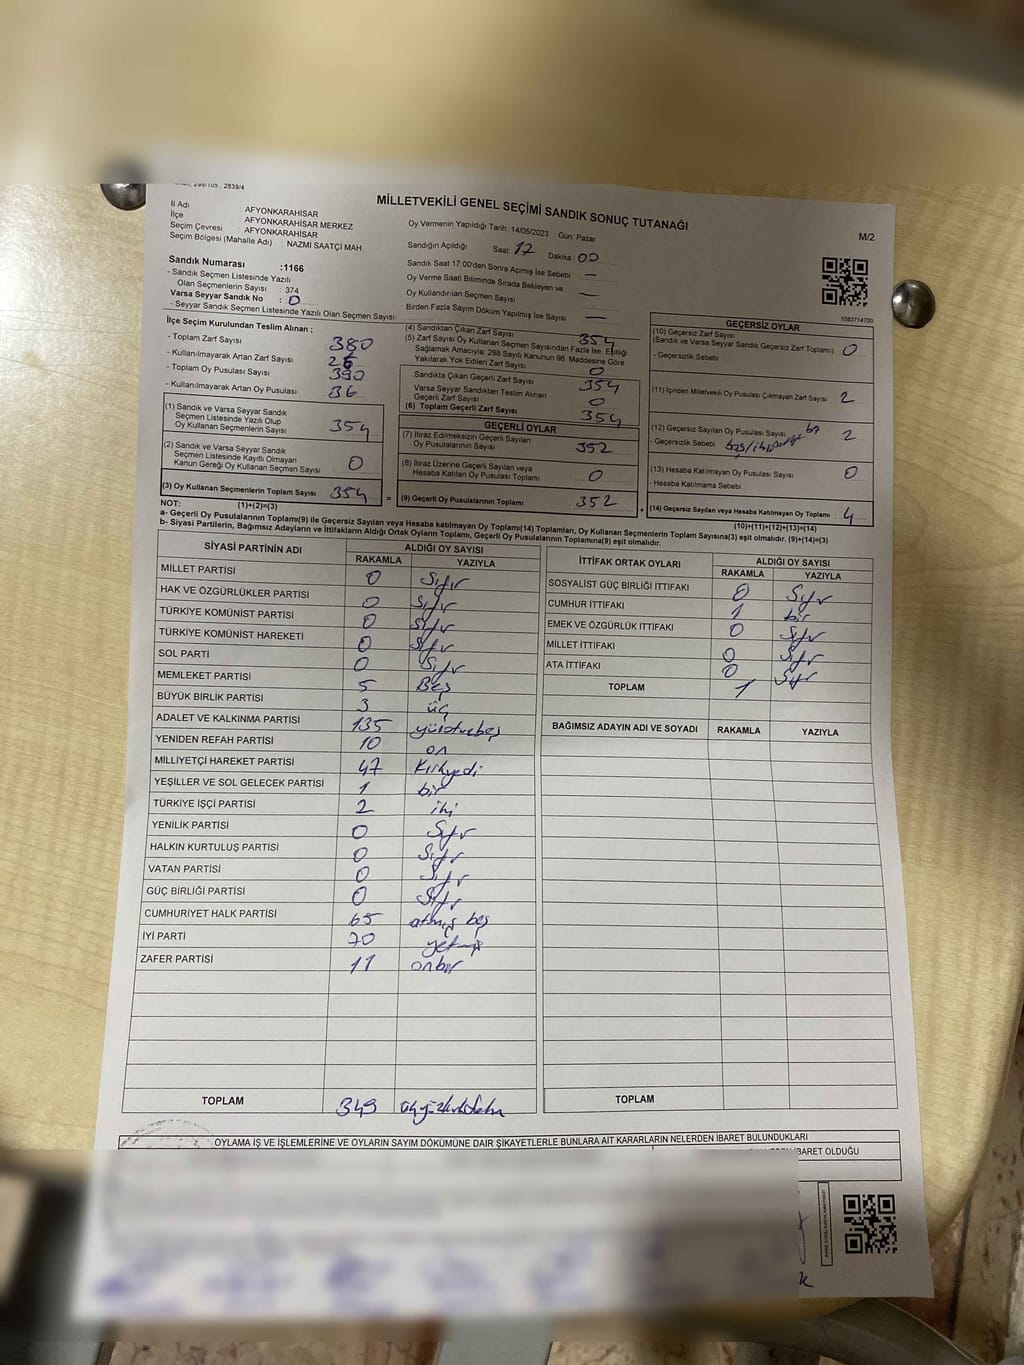 298/105 , 2839/4
MİLLETVEKİLİ GENEL SEÇİMİ SANDIK SONUÇ TUTANAĞI
M/2
İl Adı : AFYONKARAHİSAR
İlçe : AFYONKARAHİSAR MERKEZ
Seçim Çevresi : AFYONKARAHİSAR
Seçim Bölgesi (Mahalle Adı) : NAZMİ SAATÇİ MAH.
Sandık Numarası :1166
- Sandık Seçmen Listesinde Yazılı
Olan Seçmenlerin Sayısı : 374
Varsa Seyyar Sandık No : 0
- Seyyar Sandık Seçmen Listesinde Yazılı Olan Seçmen Sayısı:
Oy Vermenin Yapıldığı Tarih 14/05/2023 Gün: Pazar
Sandığın Açıldığı Saat 17 Dakika 00
Sandık Saat 17:00'den Sonra Açımış İse Sebebi —
Oy Verme Saati Bitiminde Sırada Bekleyen ve
Oy Kullandırılan Seçmen Sayısı —
Birden Fazla Sayım Döküm Yapılmış İse Sayısı —
1083714700
İlçe Seçim Kurulundan Teslim Alınan ;
- Toplam Zarf Sayısı 380
- Kullanılmayarak Artan Zarf Sayısı 26
- Toplam Oy Pusulası Sayısı 390
- Kullanılmayarak Artan Oy Pusulası 36
(1) Sandık ve Varsa Seyyar Sandık
Seçmen Listesinde Yazılı Olup
Oy Kullanan Seçmenlerin Sayısı 354
(2) Sandık ve Varsa Seyyar Sandık
Seçmen Listesinde Kayıtlı Olmayan
Kanun Gereği Oy Kullanan Seçmen Sayısı 0
(3) Oy Kullanan Seçmenlerin Toplam Sayısı 354 =
(1)+(2)=(3)
(4) Sandıktan Çıkan Zarf Sayısı 354
(5) Zarf Sayısı Oy Kullanan Seçmen Sayısından Fazla İse, Eşitliği
Sağlamak Amacıyla, 298 Sayılı Kanunun 98. Maddesine Göre
Yakılarak Yok Edilen Zarf Sayısı 0
Sandıkta Çıkan Geçerli Zarf Sayısı 354
Varsa Seyyar Sandıktan Teslim Alınan
Geçerli Zarf Sayısı 0
(6) Toplam Geçerli Zarf Sayısı 354
GEÇERLİ OYLAR
(7) İtiraz Edilmeksizin Geçerli Sayılan
Oy Pusulalarının Sayısı 352
(8) İtiraz Üzerine Geçerli Sayılan veya
Hesaba Katılan Oy Pusulası Toplamı 0
(9) Geçerli Oy Pusulalarının Toplamı 352 +
GEÇERSİZ OYLAR
(10) Geçersiz Zarf Sayısı
(Sandık ve Varsa Seyyar Sandık Geçersiz Zarf Toplamı) 0
- Geçersizlik Sebebi
(11) İçinden Milletvekili Oy Pusulası Çıkmayan Zarf Sayısı 2
(12) Geçersiz Sayılan Oy Pusulası Sayısı 2
- Geçersizlik Sebebi
(13) Hesaba Katılmayan Oy Pusulası Sayısı 0
- Hesaba Katılmama Sebebi
(14) Geçersiz Sayılan veya Hesaba Katılmayan Oy Toplamı 4
(10)+(11)+(12)+(13)=(14)
NOT:
a- Geçerli Oy Pusulalarının Toplamı(9) ile Geçersiz Sayılan veya Hesaba katılmayan Oy Toplamı(14) Toplamları, Oy Kullanan Seçmenlerin Toplam Sayısına(3) eşit olmalıdır. (9)+(14)=(3)
b- Siyasi Partilerin, Bağımsız Adayların ve İttifakların Aldığı Ortak Oyların Toplamı, Geçerli Oy Pusulalarının Toplamına(9) eşit olmalıdır.
SİYASİ PARTİNİN ADI ALDIĞI OY SAYISI
RAKAMLA YAZIYLA
MİLLET PARTİSİ 0 Sıfır
HAK VE ÖZGÜRLÜKLER PARTİSİ 0 Sıfır
TÜRKİYE KOMÜNİST PARTİSİ 0 Sıfır
TÜRKİYE KOMÜNİST HAREKETİ 0 Sıfır
SOL PARTİ 0 Sıfır
MEMLEKET PARTİSİ 5 Beş
BÜYÜK BİRLİK PARTİSİ 3 üç
ADALET VE KALKINMA PARTİSİ 135 yüzotuzbeş
YENİDEN REFAH PARTİSİ 10 on
MİLLİYETÇİ HAREKET PARTİSİ 47 Kırkyedi
YEŞİLLER VE SOL GELECEK PARTİSİ 1 bir
TÜRKİYE İŞÇİ PARTİSİ 2 iki
YENİLİK PARTİSİ 0 Sıfır
HALKIN KURTULUŞ PARTİSİ 0 Sıfır
VATAN PARTİSİ 0 Sıfır
GÜÇ BİRLİĞİ PARTİSİ 0 Sıfır
CUMHURİYET HALK PARTİSİ 65 atmış beş
İYİ PARTİ 70 yetmiş
ZAFER PARTİSİ 11 onbir
TOPLAM 349
İTTİFAK ORTAK OYLARI ALDIĞI OY SAYISI
RAKAMLA YAZIYLA
SOSYALİST GÜÇ BİRLİĞİ İTTİFAKI 0 Sıfır
CUMHUR İTTİFAKI 1 bir
EMEK VE ÖZGÜRLÜK İTTİFAKI 0 Sıfır
MİLLET İTTİFAKI 0 Sıfır
ATA İTTİFAKI 0 Sıfır
TOPLAM 1
BAĞIMSIZ ADAYIN ADI VE SOYADI RAKAMLA YAZIYLA
TOPLAM
OYLAMA İŞ VE İŞLEMLERİNE VE OYLARIN SAYIM DÖKÜMÜNE DAİR ŞİKAYETLERLE BUNLARA AİT KARARLARIN NELERDEN İBARET BULUNDUKLARI
İBARET OLDUĞU